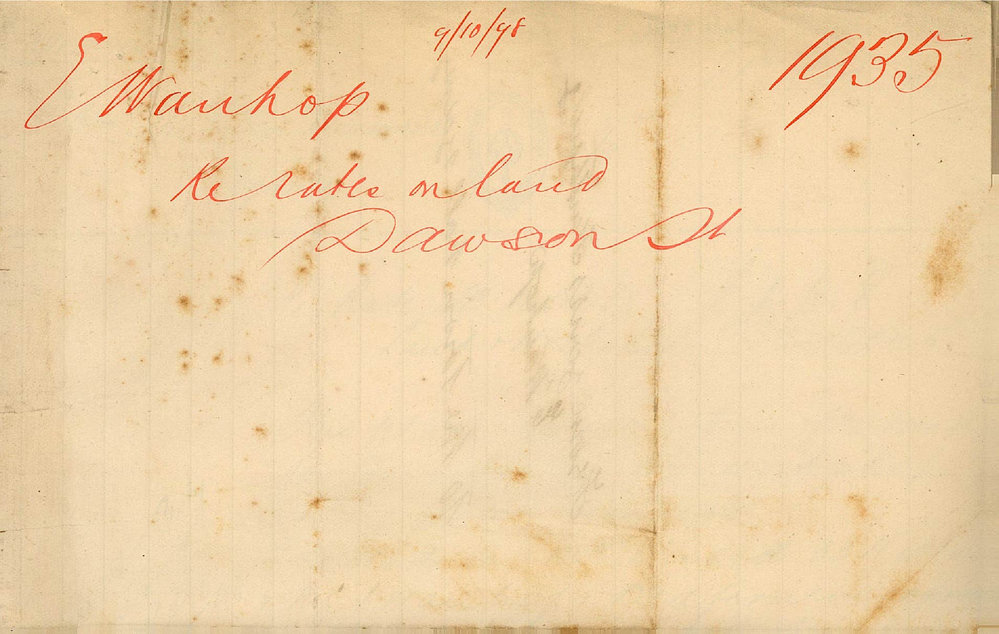 9/10/98
1935
E Wanhop
Re rates on land
Dawson St